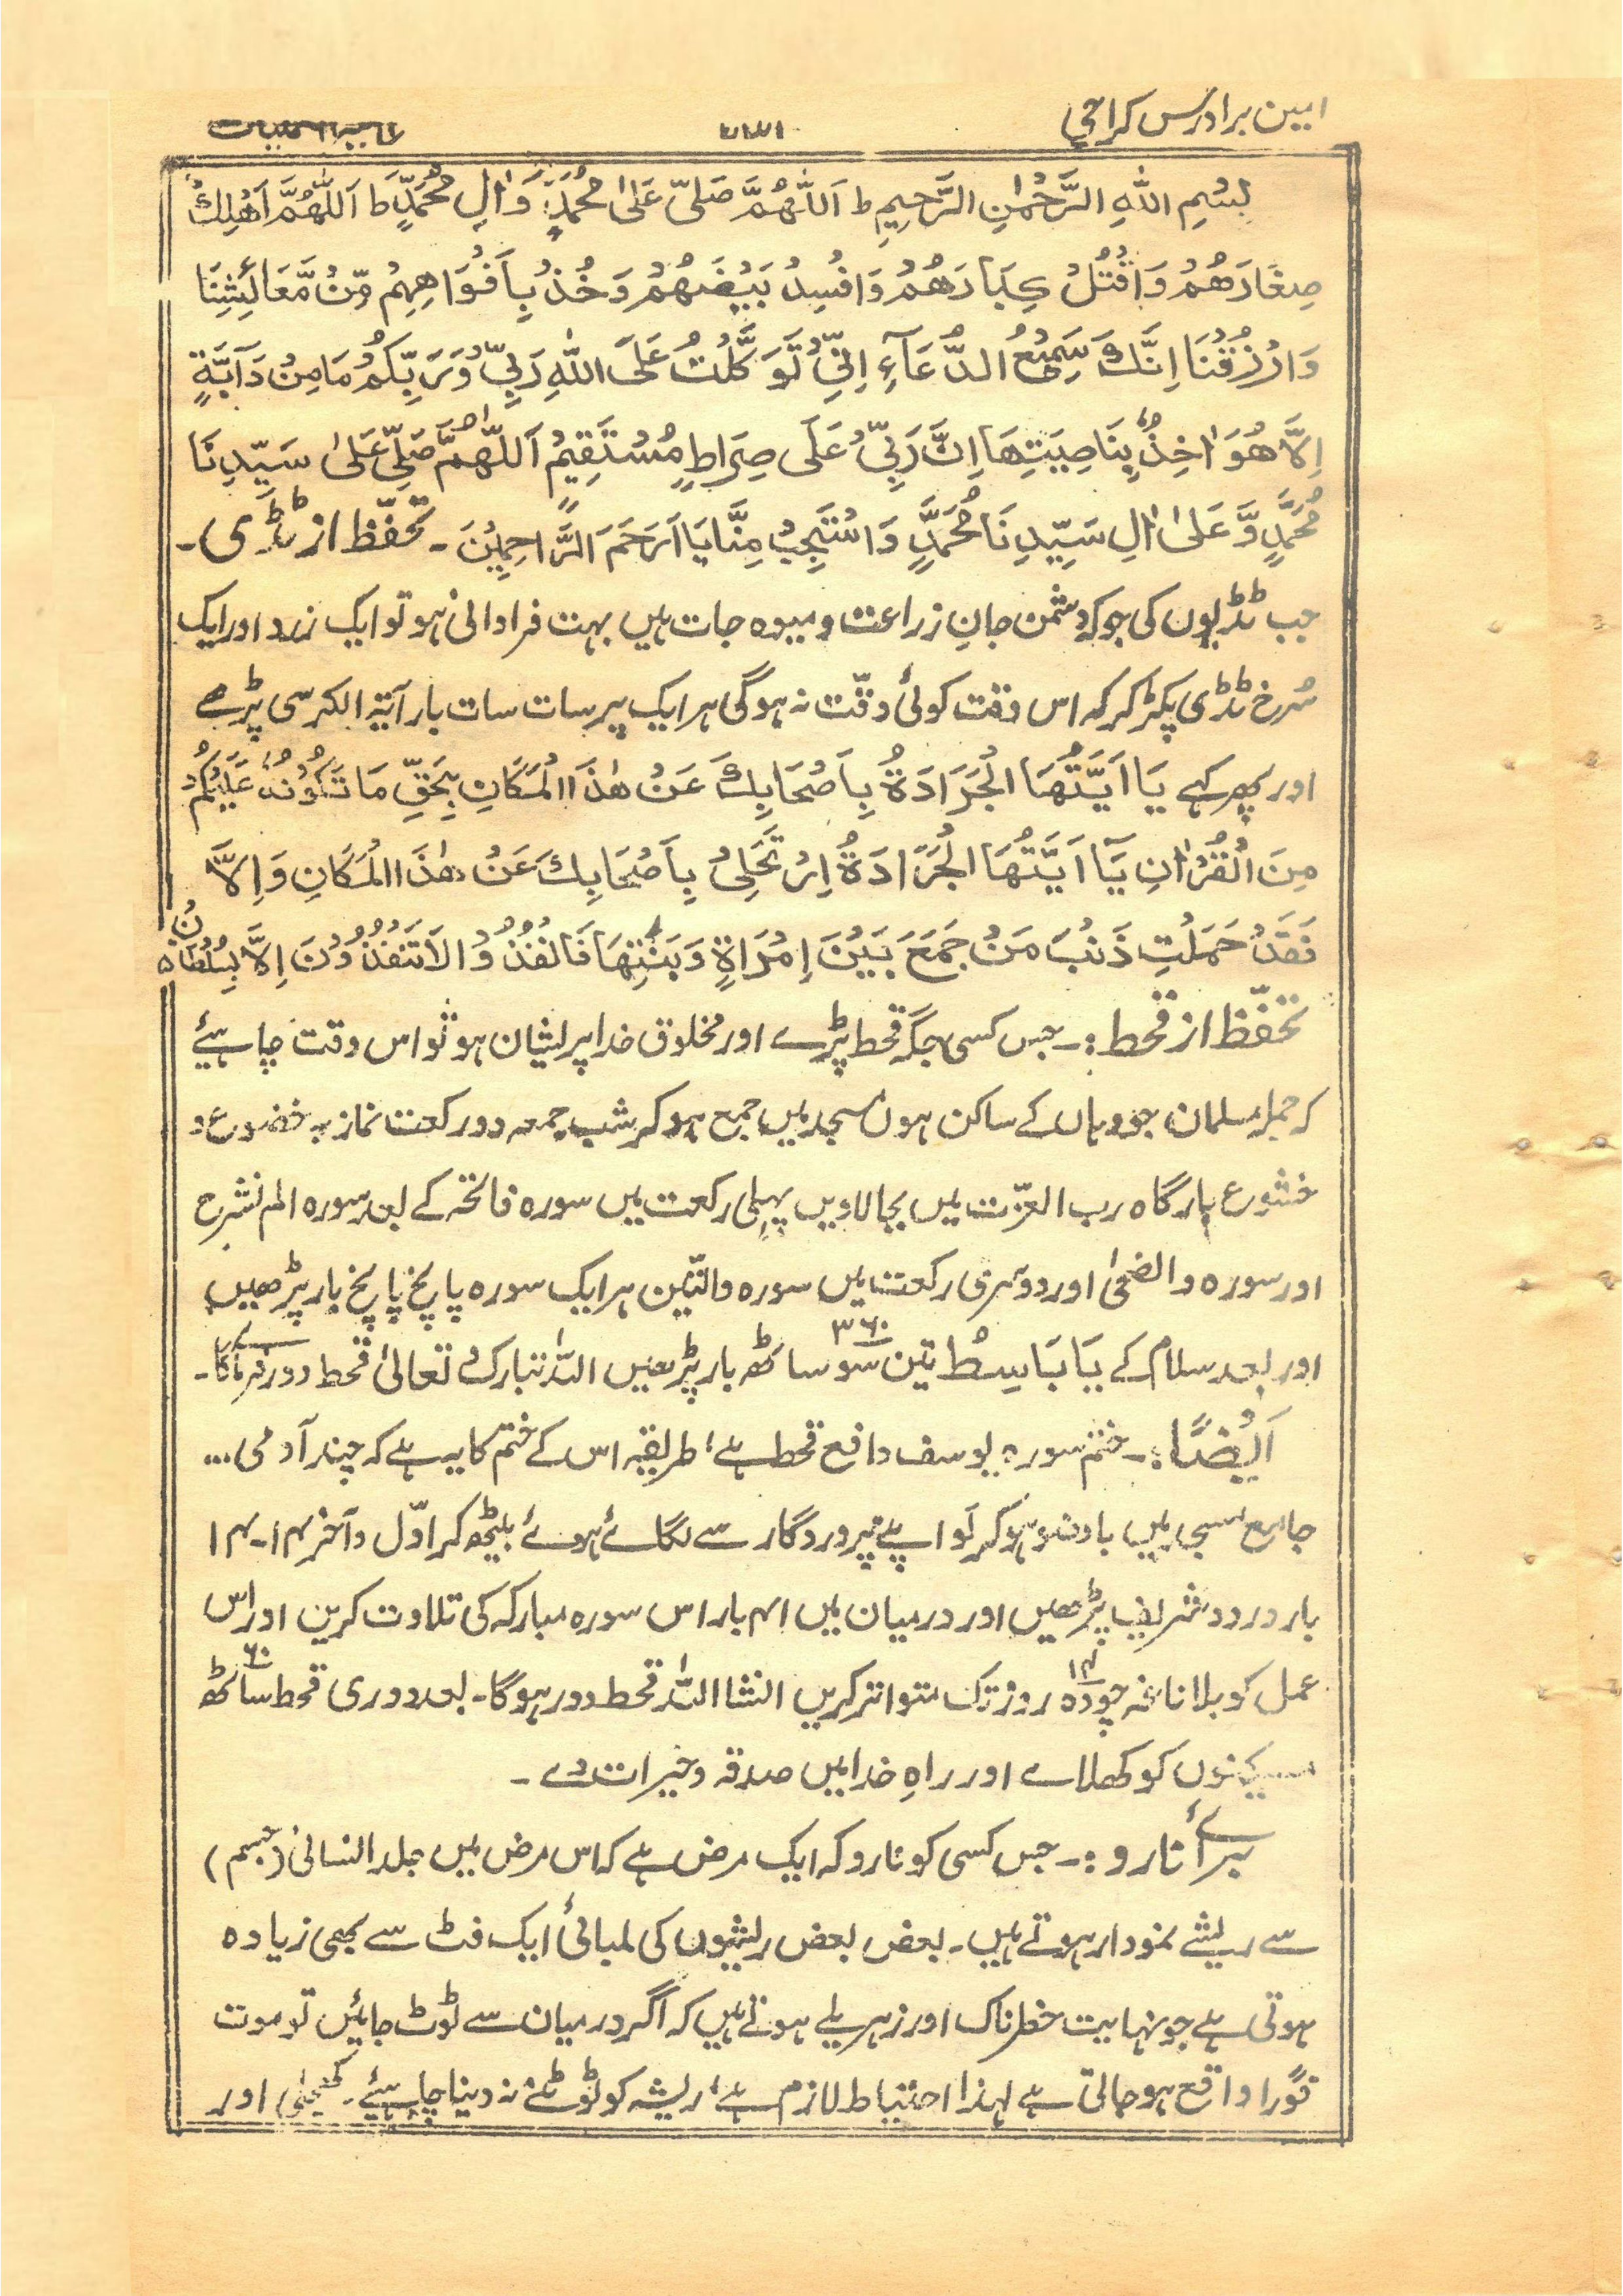 امین برادرس کراچی
بِسْمِ اللّٰهِ الرَّحْمٰنِ الرَّحِيْمِ ط اَللّٰهُمَّ صَلِّ عَلىٰ مُحَمَّدٍ وَّاٰلِ مُحَمَّدٍ ط اَللّٰهُمَّ اَهْلِكْ
صِغَارَهُمْ وَاقْتُلْ كِبَارَهُمْ وَافْسِدْ بَيْضَهُمْ وَخُذْ بِاَفْوَاهِهِمْ مِّنْ مَّعَائِشِنَا
وَارْزُقْنَا اِنَّكَ سَمِيْعُ الدُّعَآءِ اِنِّيْ تَوَكَّلْتُ عَلَى اللّٰهِ رَبِّيْ وَرَبِّكُمْ مَا مِنْ دَآبَّةٍ
اِلَّا هُوَ اٰخِذٌ بِنَاصِيَتِهَا اِنَّ رَبِّيْ عَلَى صِرَاطٍ مُسْتَقِيْمٍ اَللّٰهُمَّ صَلِّ عَلىٰ سَيِّدِنَا
مُحَمَّدٍ وَّعَلىٰ اٰلِ سَيِّدِنَا مُحَمَّدٍ وَاسْتَجِبْ مِنَّا يَا اَرْحَمَ الرَّاحِمِيْنَ ـ تحفّظ از ٹڈی ـ
جب ٹڈیوں کی جو کہ دشمن جانِ زراعت و میوہ جات ہیں بہت فراوانی ہو تو ایک زرد اور ایک
سُرخ ٹڈی پکڑ کر کہ اس وقت کوئی دقّت نہ ہوگی ہر ایک پر سات سات بار آیۃ الکرسی پڑھے
اور پھر کہے يَا اَيَّتُهَا الْجَرَادَةُ بِاَصْحَابِكَ عَنْ هٰذَا الْمَكَانِ بِحَقِّ مَا تَلَوْتُهُ عَلَيْكُمْ
مِنَ الْقُرْاٰنِ يَآ اَيَّتُهَا الْجَرَادَةُ اِرْتَحَلِيْ بِاَصْحَابِكَ عَنْ هٰذَا الْمَكَانِ وَاِلَّا
فَقَدْ حَمَلْتِ ذَنْبَ مَنْ جَمَعَ بَيْنَ اِمْرَاةٍ وَبَنْتِهَا فَانْفُذُوْا لَاتَنْفُذُوْنَ اِلَّا بِسُلْطَانٍ ہ
تحفّظ از قحط :ـ جس کسی جگہ قحط پڑے اور مخلوق خدا پریشان ہو تو اس وقت چاہیئے
کہ جملہ مسلمان جو وہاں کے ساکن ہوں مسجد میں جمع ہو کر شب جمعہ دو رکعت نماز بہ خضوع و
خشوع بارگاہ رب العزّت میں بجا لاویں پہلی رکعت میں سورہ فاتحہ کے بعد سورہ الم نشرح
اور سورہ والضحیٰ اور دوسری رکعت میں سورہ والتّین ہر ایک سورہ پانچ پانچ بار پڑھیں
اور بعد سلام کے يَا بَاسِطُ تین سو ساٹھ ۳۶۰ بار پڑھیں اللّٰہ تبارک و تعالیٰ قحط دور فرمائے گا ـ
اَيْضًا :ـ ختم سورہ یوسف دافع قحط ہے، طریقہ اس کے ختم کا یہ ہے کہ چند آدمی ...
جامع مسجد میں باوضو ہو کر لَو اپنے پروردگار سے لگائے ہوئے بیٹھ کر اوّل و آخر ۱۴ ـ ۱۴
بار درود شریف پڑھیں اور درمیان میں ۴۱ بار اس سورہ مبارکہ کی تلاوت کریں اور اس
عمل کو بلا ناغہ چودہ ۱۴ روز تک متواتر کریں انشا اللّٰہ قحط دور ہوگا ـ بعد دوری قحط ساٹھ ۶۰
مسکینوں کو کھلائے اور راہِ خدا میں صدقہ و خیرات دے ـ
برائے نارو :ـ جس کسی کو نارو کہ ایک مرض ہے کہ اس مرض میں جلد انسانی (جسم)
سے ریشے نمودار ہوتے ہیں ـ بعض بعض ریشوں کی لمبائی ایک فٹ سے بھی زیادہ
ہوتی ہے جو نہایت خطرناک اور زہریلے ہوتے ہیں کہ اگر درمیان سے ٹوٹ جائیں تو موت
فوراً واقع ہو جاتی ہے لہذا احتیاط لازم ہے، ریشہ کو ٹوٹنے نہ دینا چاہیئے ـ اور